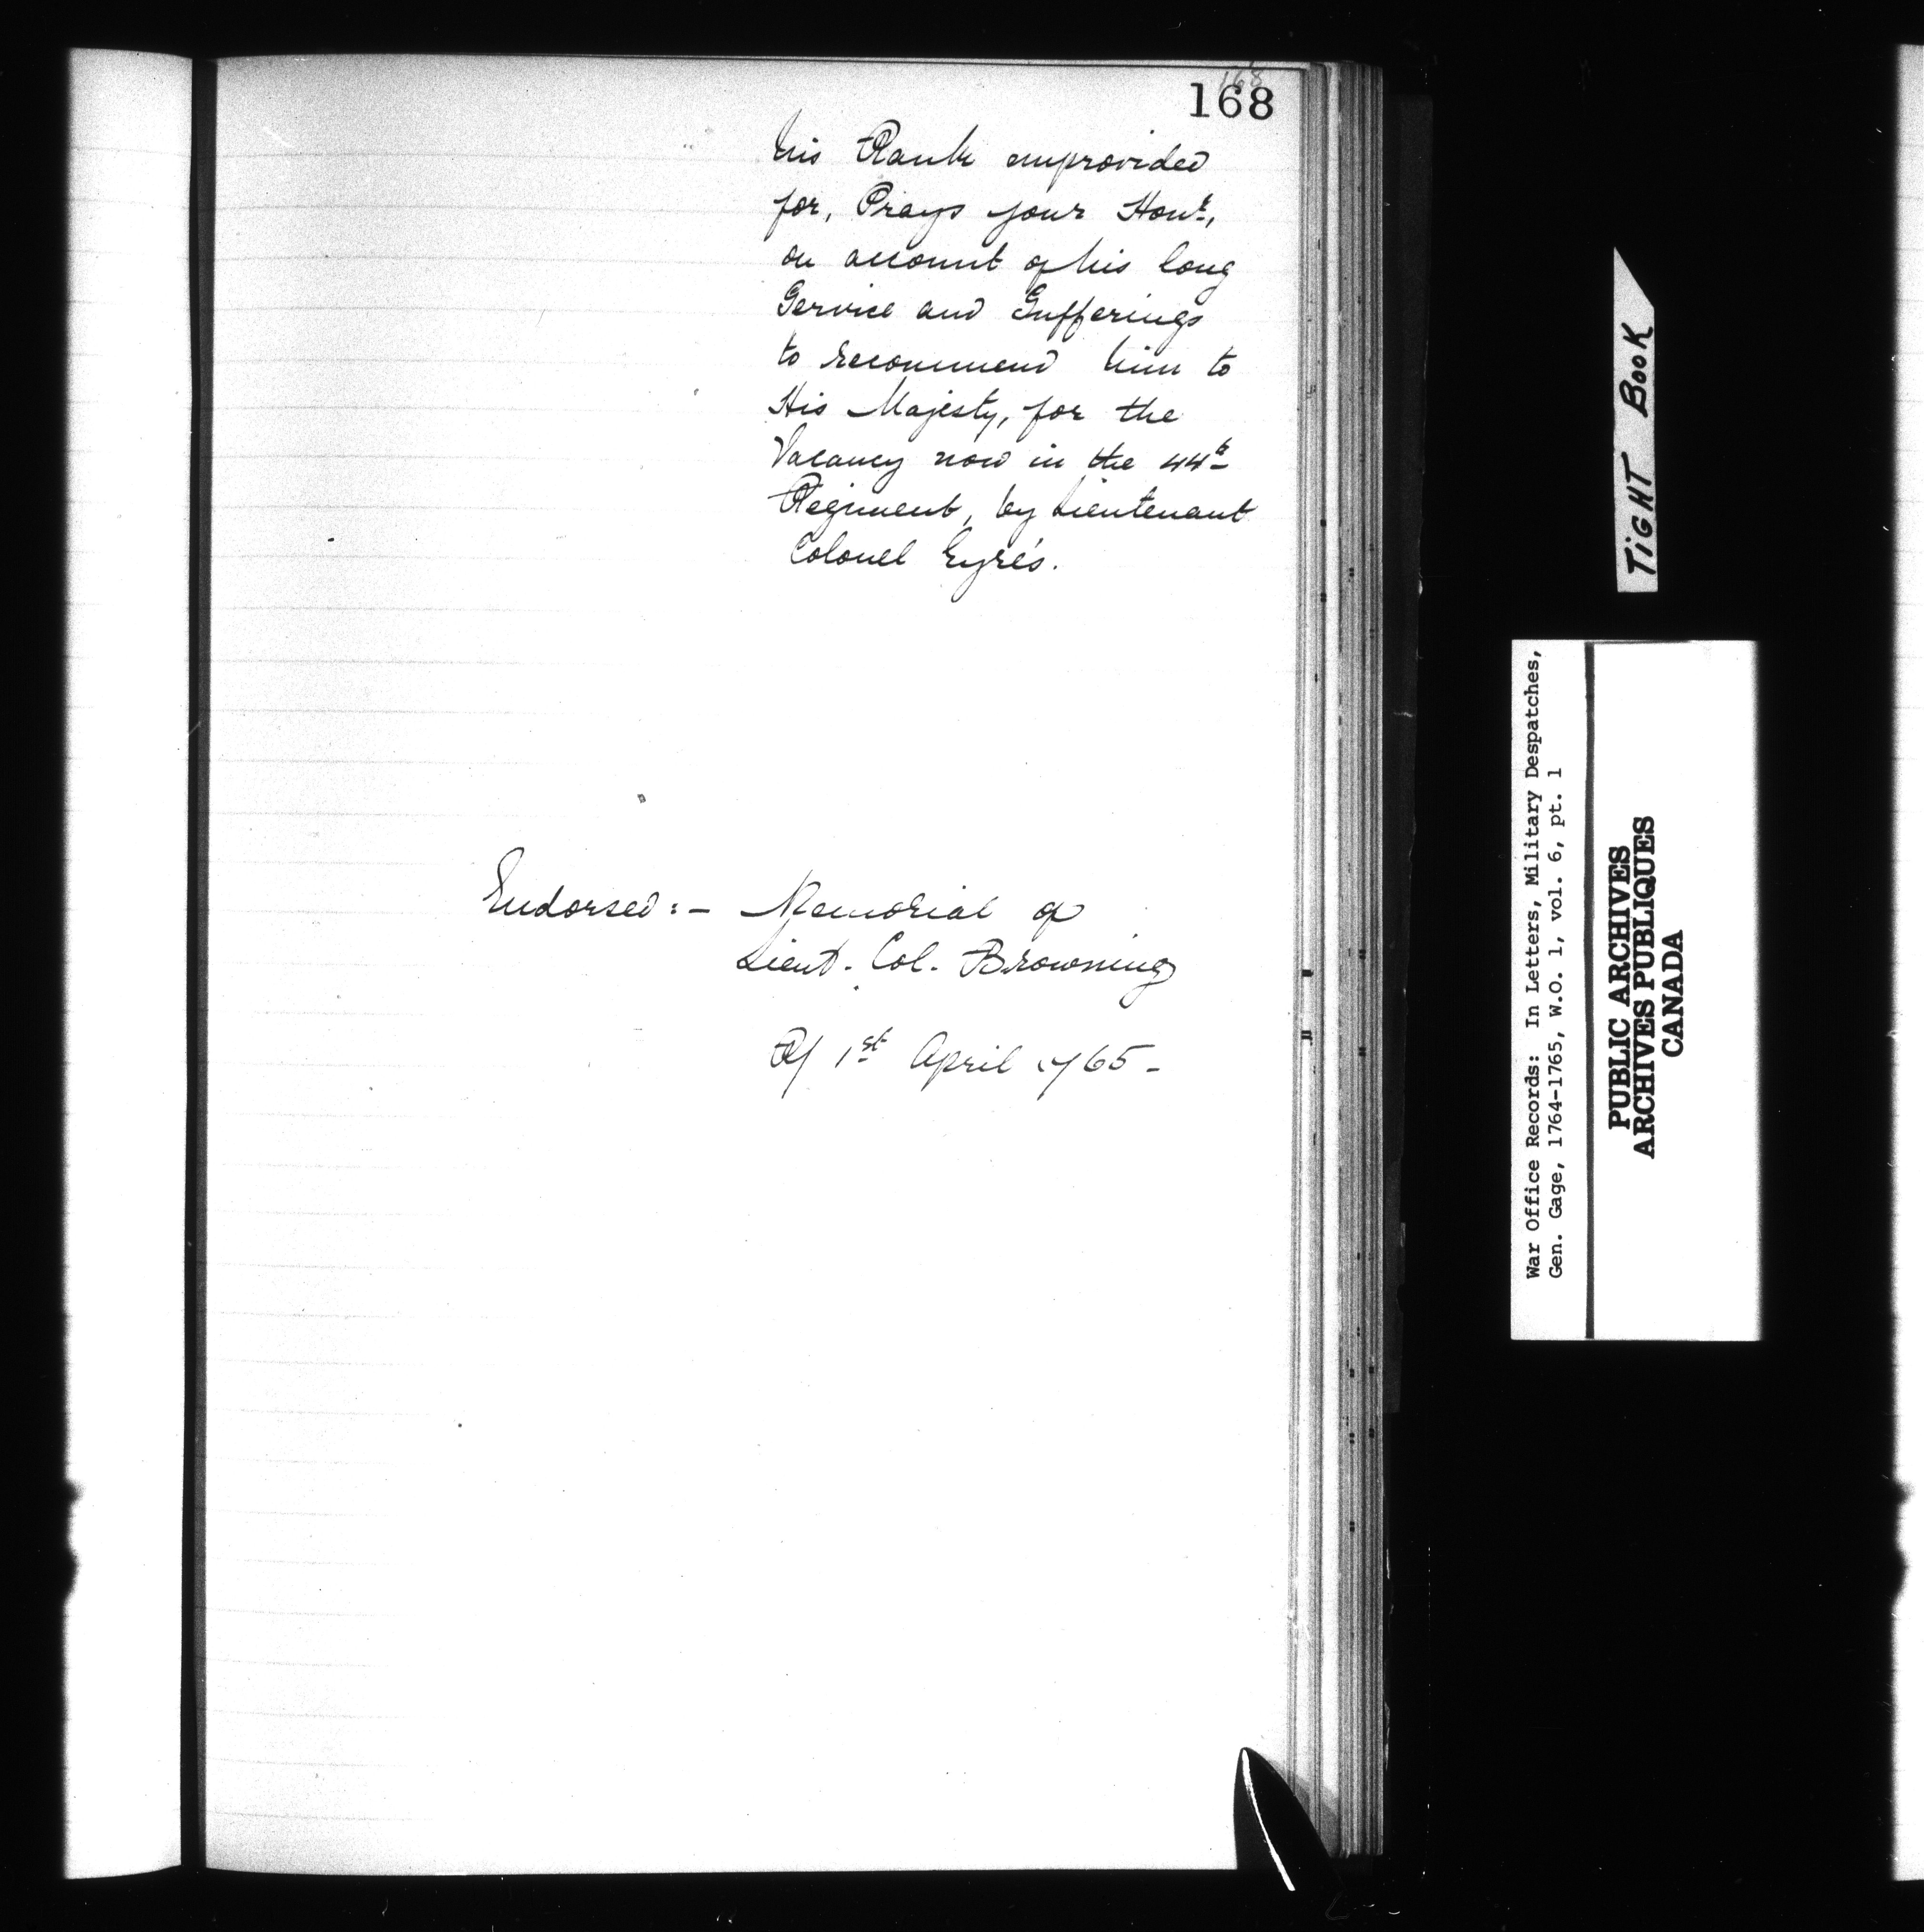 168
168
his Rank unprovided
for, Prays your Honr.,
on account of his long
Service and Sufferings
to recommend him to
His Majesty, for the
Vacancy now in the 44th
Regiment, by Lieutenant
Colonel Eyre's.
Endorsed:- Memorial of
Lieut. Col. Browning
R/ 1st April 1765-
TiGHT BooK
War Office Records: In Letters, Military Despatches,
Gen. Gage, 1764-1765, W.O. 1, vol. 6, pt. 1
PUBLIC ARCHIVES
ARCHIVES PUBLIQUES
CANADA